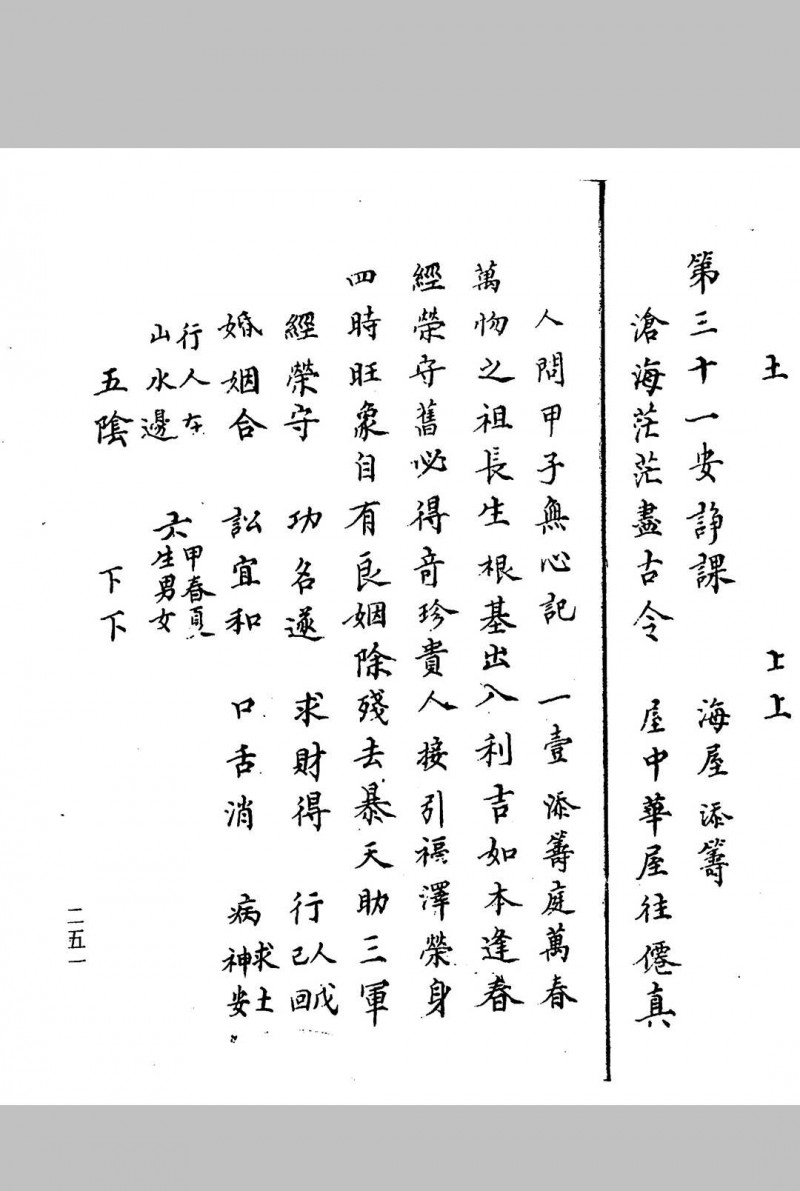 土　上上
第三十一安諍課　海屋添籌
滄海茫茫盡古今　屋中華屋往僊真
人問甲子無心記　一壹添籌庭萬春
萬物之祖長生根基出入利吉如本逢春
經榮守舊必得奇珍貴人接引福澤榮身
四時旺象自有良姻除殘去暴天助三軍
經榮守　功名遂　求財得　行人戊己回
婚姻合　訟宜和　口舌消　病求土神安
行人在山水邊　六甲春夏生男女
五陰　下下
二五一